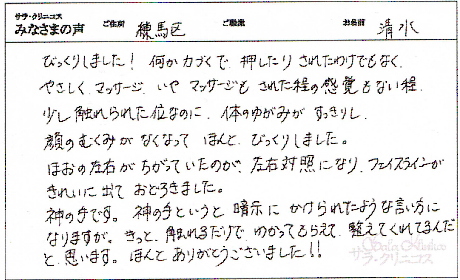 サラ・クリニコス
みなさまの声 ご住所 練馬区 ご職業 お名前 清水
びっくりしました! 何か力づくで、押したりされたわけでもなく、
やさしくマッサージ、いやマッサージもされた程の感覚もない程、
少し触れられた位なのに、体のゆがみがすっきりし、
顔のむくみがなくなって ほんと、びっくりしました。
ほおの左右がちがっていたのが、左右対照になり、フェイスラインが
きれいに出て おどろきました。
神の手です。神の手というと暗示にかけられたような言い方に
なりますが。きっと、触れるだけで、わかってもらえて、整えてくれてるんだ
と、思います。ほんとありがとうございました!!
サラ・クリニコス